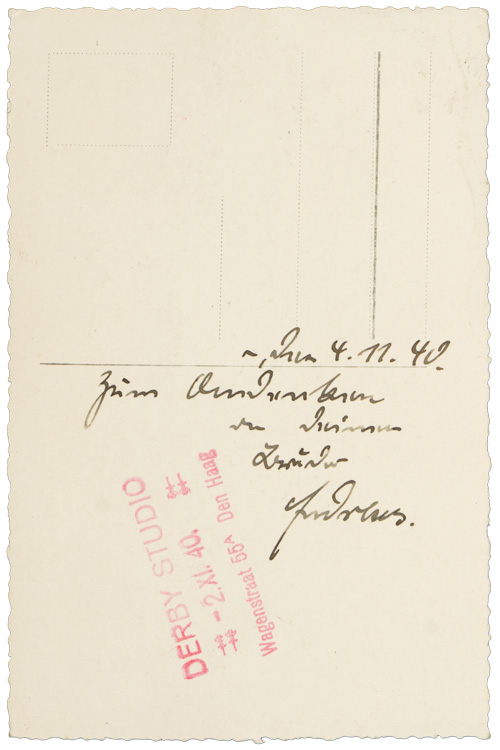 -, den 4.11.40.
Zum Andenken
an deinen
Bruder
DERBY STUDIO
- 2. XI. 40.
Wagenstraat 55A Den Haag